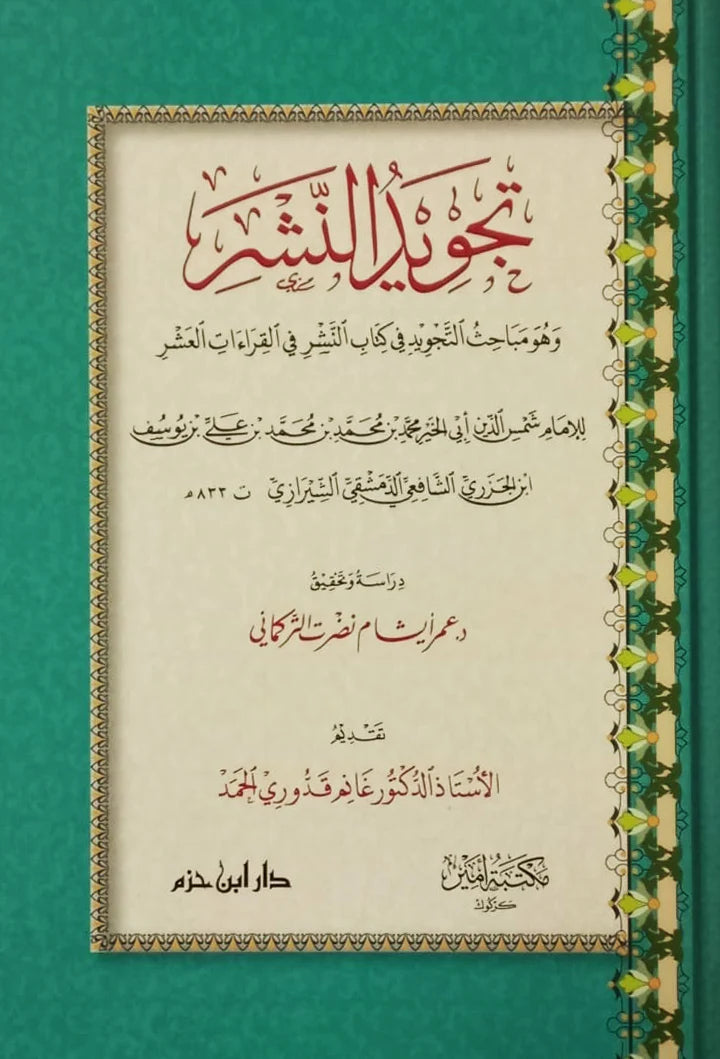 تجويد النشر
وهو مباحث التجويد في كتاب النشر في القراءات العشر
للإمام شمس الدين أبي الخير محمد بن محمد بن محمد بن علي بن يوسف
ابن الجزري الشافعي الدمشقي الشيرازي ت ٨٣٣ هـ
دراسة وتحقيق
د. عمر أيشام نضرت التركماني
تقديم
الأستاذ الدكتور غانم قدوري الحمد
مكتبة أمير
كركوك
دار ابن حزم